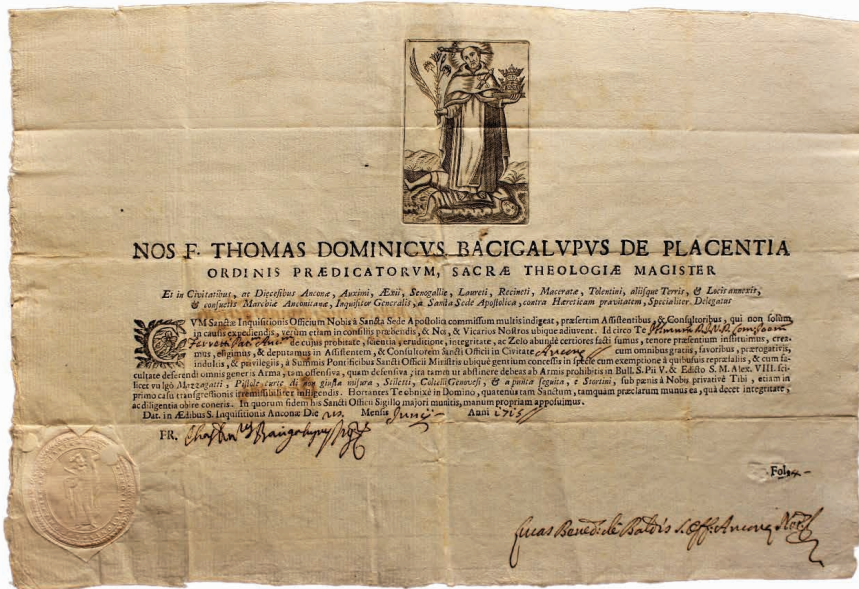 NOS F. THOMAS DOMINICVS BACIGALVPVS DE PLACENTIA
ORDINIS PRÆDICATORVM, SACRÆ THEOLOGIÆ MAGISTER
Et in Civitatibus, ac Diœcesibus Anconæ, Auximi, Æxii, Senogalliæ, Laureti, Recineti, Maceratæ, Tolentini, aliisque Terris, & Locis annexis,
& consuetis Marchiæ Anconitanæ, Inquisitor Generalis, a Sancta Sede Apostolica, contra Hæreticam pravitatem, Specialiter Delegatus
CVM Sanctæ Inquisitionis Officium Nobis à Sancta Sede Apostolica commissum multis indigeat, præsertim Assistentibus, & Consultoribus, qui non solum
in causis expediendis, verùm etiam in consiliis præbendis, & Nos, & Vicarios Nostros ubique adiuvent. Id circo Te
de cujus probitate, scientia, eruditione, integritate, ac Zelo abundè certiores facti sumus, tenore præsentium instituimus, crea-
mus, eligimus, & deputamus in Assistentem, & Consultorem Sancti Officii in Civitate Anconę cum omnibus gratiis, favoribus, prærogativis,
indultis, & privilegiis, à Summis Pontificibus Sancti Officii Ministris ubique gentium concessis in specie cum exemptione à quibusvis repræsaliis, & cum fa-
cultate deferendi omnis generis Arma, tam offensiva, quam defensiva, ita tamen ut abstinere debeas ab Armis prohibitis in Bull. S. Pii V. & Edicto S. M. Alex. VIII. sci-
licet vulgò Mazzagatti, Pistole curte di non giusta misura, Stiletti, Coltelli Genovesi, & a punta seguita, e Stortini, sub pœnis à Nobis privativè Tibi, etiam in
primo casu transgressionis irremissibiliter infligendis. Hortantes Te obnixè in Domino, quatenùs tam Sanctum, tamquam præclarum munus ea, quà decet integritate,
ac diligentia obire coneris. In quorum fidem his Sancti Officii Sigillo majori munitis, manum propriam apposuimus.
Dat. in Ædibus S. Inquisitionis Anconæ Die Mensis Junij Anni 1715
FR.
Fol.
Lucas Bened. de Baldis S. Off. Anconę Not.